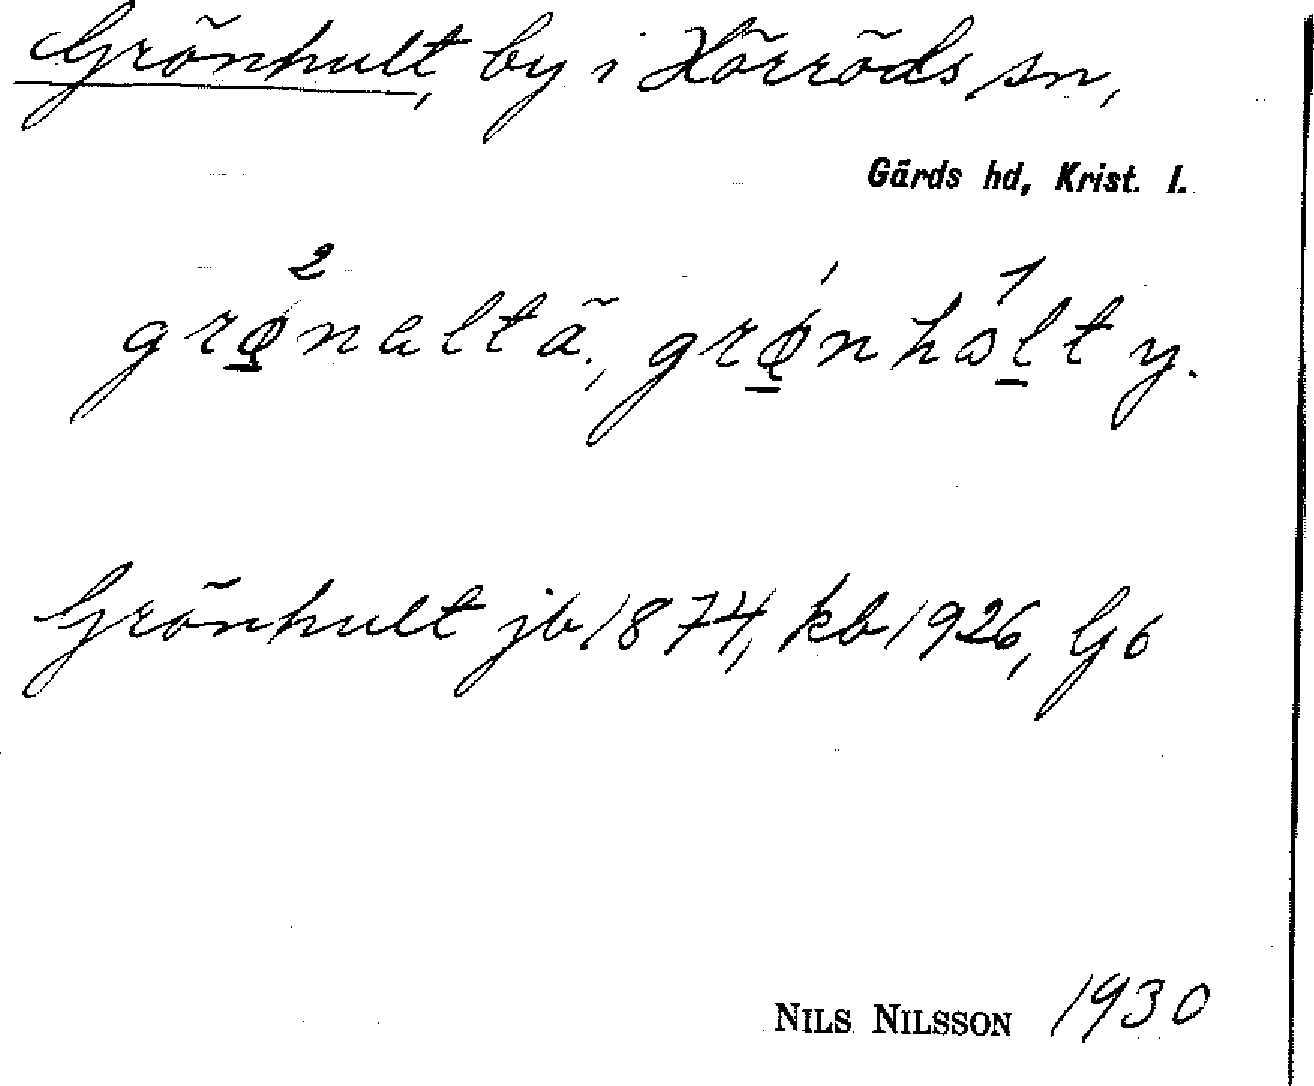 Grönhult, by i Hörröds sn,
Gärds hd, Krist. l.
grø̱²naltä., grǿ̱nhɔ́ḻt y.
Grönhult jb 1874, kb 1926, G6
NILS NILSSON 1930